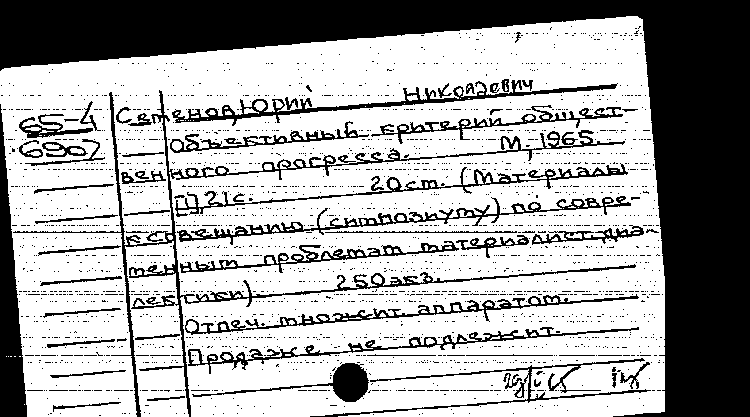 65-4 Семенов, Юрий Николаевич
6907 Объективный критерий общест-
венного прогресса. М., 1965.
[], 21 с. 20 см. (Материалы
к совещанию (симпозиуму) по совре-
менным проблемам материалист. диа-
лектики). 250 экз.
Отпеч. множит. аппаратом.
Продаже не подлежит.